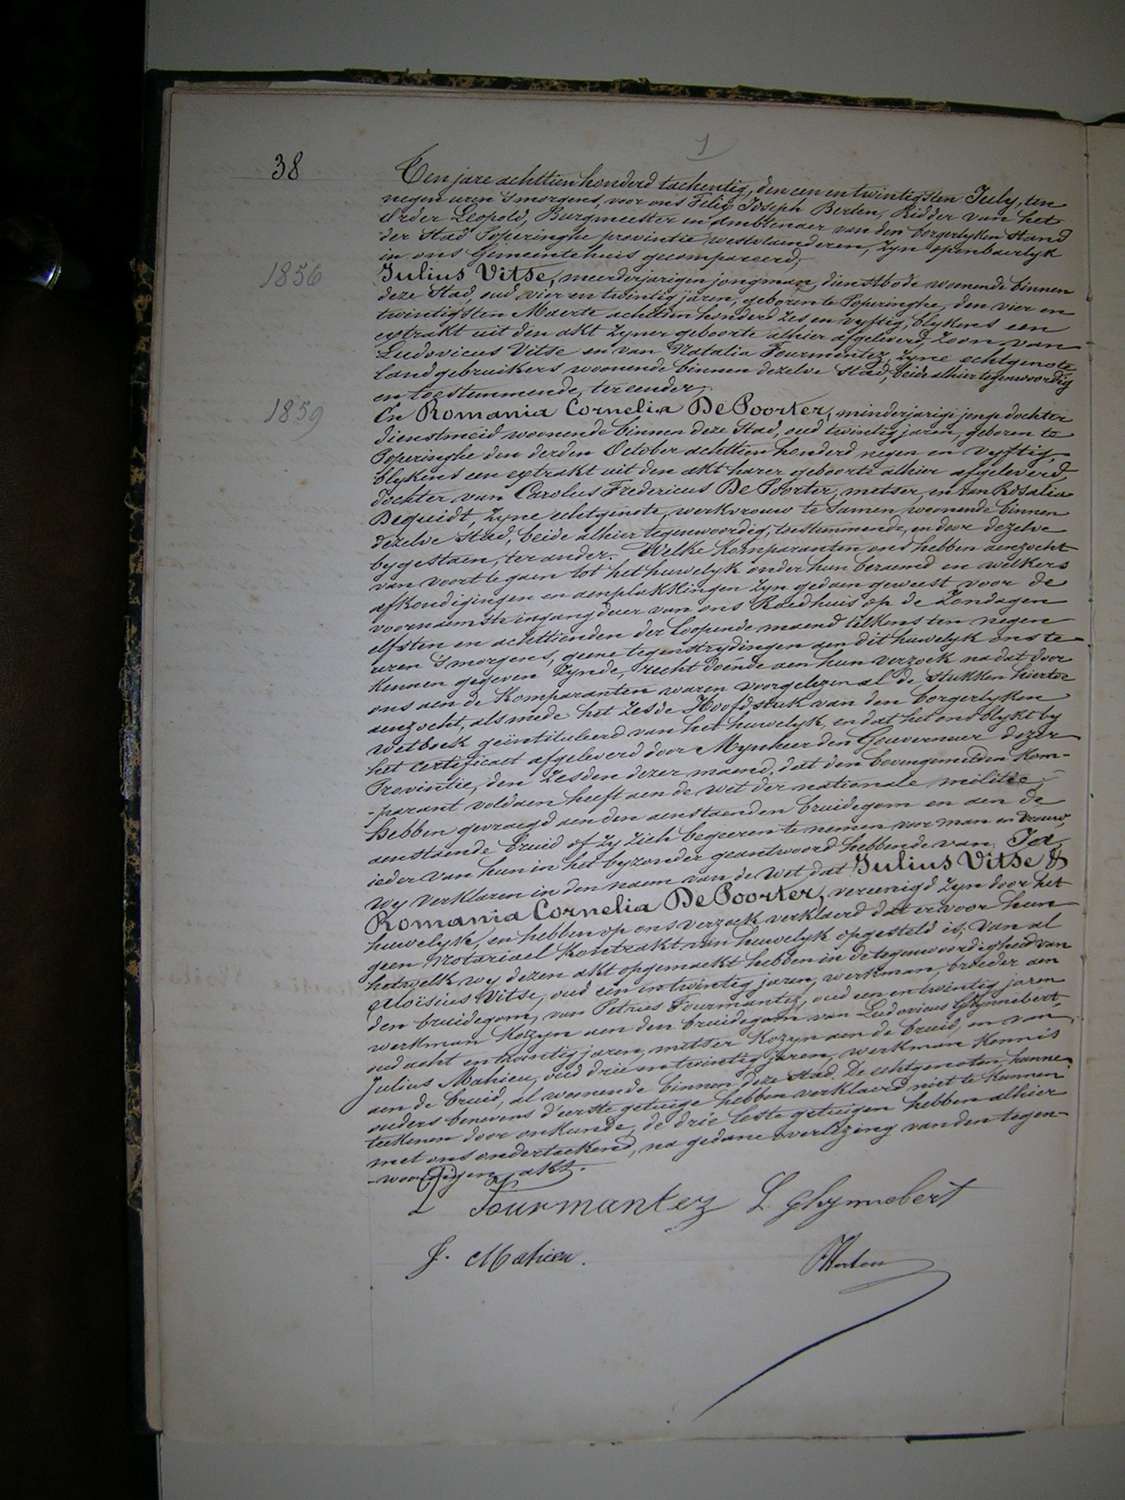 1
38
Ten jare achttien honderd tachentig, den een en twintigsten July, ten
negen uren 's morgens, voor ons Felix Joseph Berten, Ridder van het
Order Leopold, Burgmeester en ambtenaer van den borgerlyken stand
der Stad Poperinghe provintie westvlaenderen, zyn openbaerlyk
in ons Gemeentehuis gecompareerd;
1856
Julius Vitse, meerderjarigen jongman, dienstbode woonende binnen
deze Stad, oud vier en twintig jaren, geboren te Poperinghe, den vier en
twintigsten Maerte achttien honderd zes en vyftig, blykens een
extrakt uit den akt zyner geboorte alhier afgeleverd, zoon van
Ludovicus Vitse en van Natalia Fourmentez, zyne echtgenote
landgebruikers woonende binnen dezelve stad, beide alhier tegenwoordig
en toestemmende, ter eender;
1859
En Romania Cornelia De Poorter, minderjarige jonge dochter
dienstmeid woonende binnen deze Stad, oud twintig jaren, geboren te
Poperinghe den derden October achttien honderd negen en vyftig,
blykens een extrakt uit den akt harer geboorte alhier afgeleverd,
dochter van Carolus Fredericus De Poorter, metser, en van Rosalia
Dequidt, zyne echtgenote, werkvrouw te samen woonende binnen
dezelve stad, beide alhier tegenwoordig, toestemmende, en door dezelve
bygestaen, ter ander. Welke Komparanten ons hebben aenzocht
van voort te gaen tot het huwelyk onder hun beraemd en welkers
afkondigingen en aenplakkingen zyn gedaen geweest voor de
voornaemste ingangdeur van ons Raedhuis op de Zondagen
elfsten en achttienden der loopende maend telkens ten negen
uren 's morgens, geene tegenstrydingen aen dit huwelyk ons te
kennen gegeven zynde, recht doende aen hun verzoek na dat door
ons aen de Komparanten waren voorgelezen al de stukken hiertoe
aenzocht, als mede het zesde Hoofdstuk van den borgerlyken
wetboek geïntituleerd van het huwelyk, en dat het ons blykt by
het certificaet afgeleverd door Mynheer den Gouverneur dezer
Provintie, den zesden dezer maend, dat den bovengemelden Kom-
-parant voldaen heeft aen de wet der nationale militie;
Hebben gevraegd aen den aenstaenden bruidegom en aen de
aenstaende bruid of zy zich begeeren te nemen voor man en vrouw,
ieder van hun in het byzonder geantwoord hebbende van Ja,
wy verklaren in den naem van de wet dat Julius Vitse &
Romania Cornelia De Poorter, vereenigd zyn door het
huwelyk, en hebben op ons verzoek verklaerd dat er voor hun
geen notariael Kontrakt van huwelyk opgesteld is; van al
hetwelk wy dezen akt opgemaekt hebben in de tegenwoordigheid van
Aloïsius Vitse, oud een en twintig jaren, werkman, broeder aen
den bruidegom, van Petrus Fourmantez, oud een en twintig jaren
werkman Kozyn aen den bruidegom van Ludovicus Ghynnebert
oud acht en twintig jaren, metser Kozyn aen de bruid, en van
Julius Mahieu, oud drie en twintig jaren, werkman Kennis
aen de bruid, al woonende binnen deze stad. De echtgenoten, hunne
ouders benevens d'eerste getuige hebben verklaerd niet te kunnen
teekenen door onkunde, de drie leste getuigen hebben alhier
met ons onderteekend, na gedane overlezing van den tegen-
-woordigen akt.
Fourmantez L. Ghynnebert
J. Mahieu. Berten